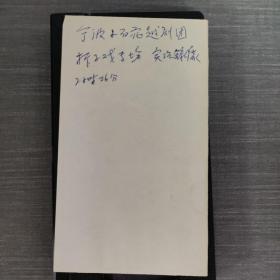 宁波小百花越剧团
折子戏专场 实况录像
2小时26分